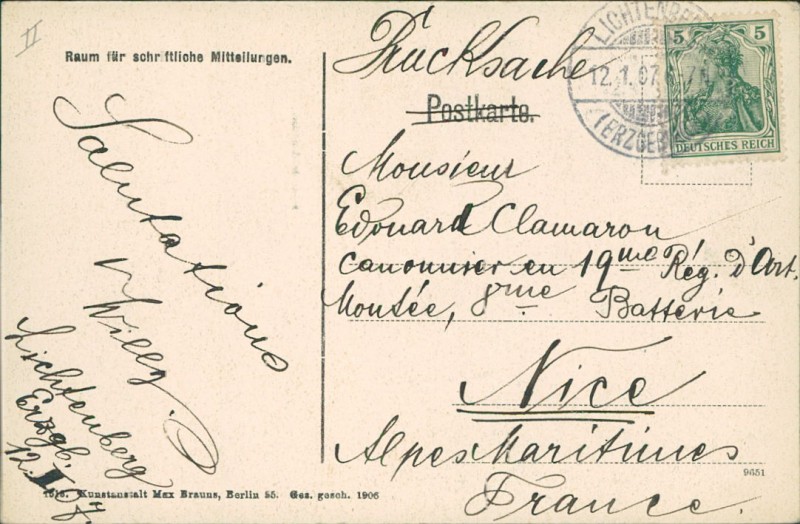 II
Raum für schriftliche Mitteilungen.
Salutations
Willy.
Lichtenberg
Erzgb.
12. I 07.
Drucksache
Postkarte.
LICHTENBE
12.1.07. 7
(ERZGEB
5 5
DEUTSCHES REICH
Monsieur
Edouard Clamaron
canonnier en 19me Rég. d'Art.
Montée, 8me Batterie
Nice
Alpes Maritimes
France.
9651
Kunstanstalt Max Brauns, Berlin 55. Ges. gesch. 1906